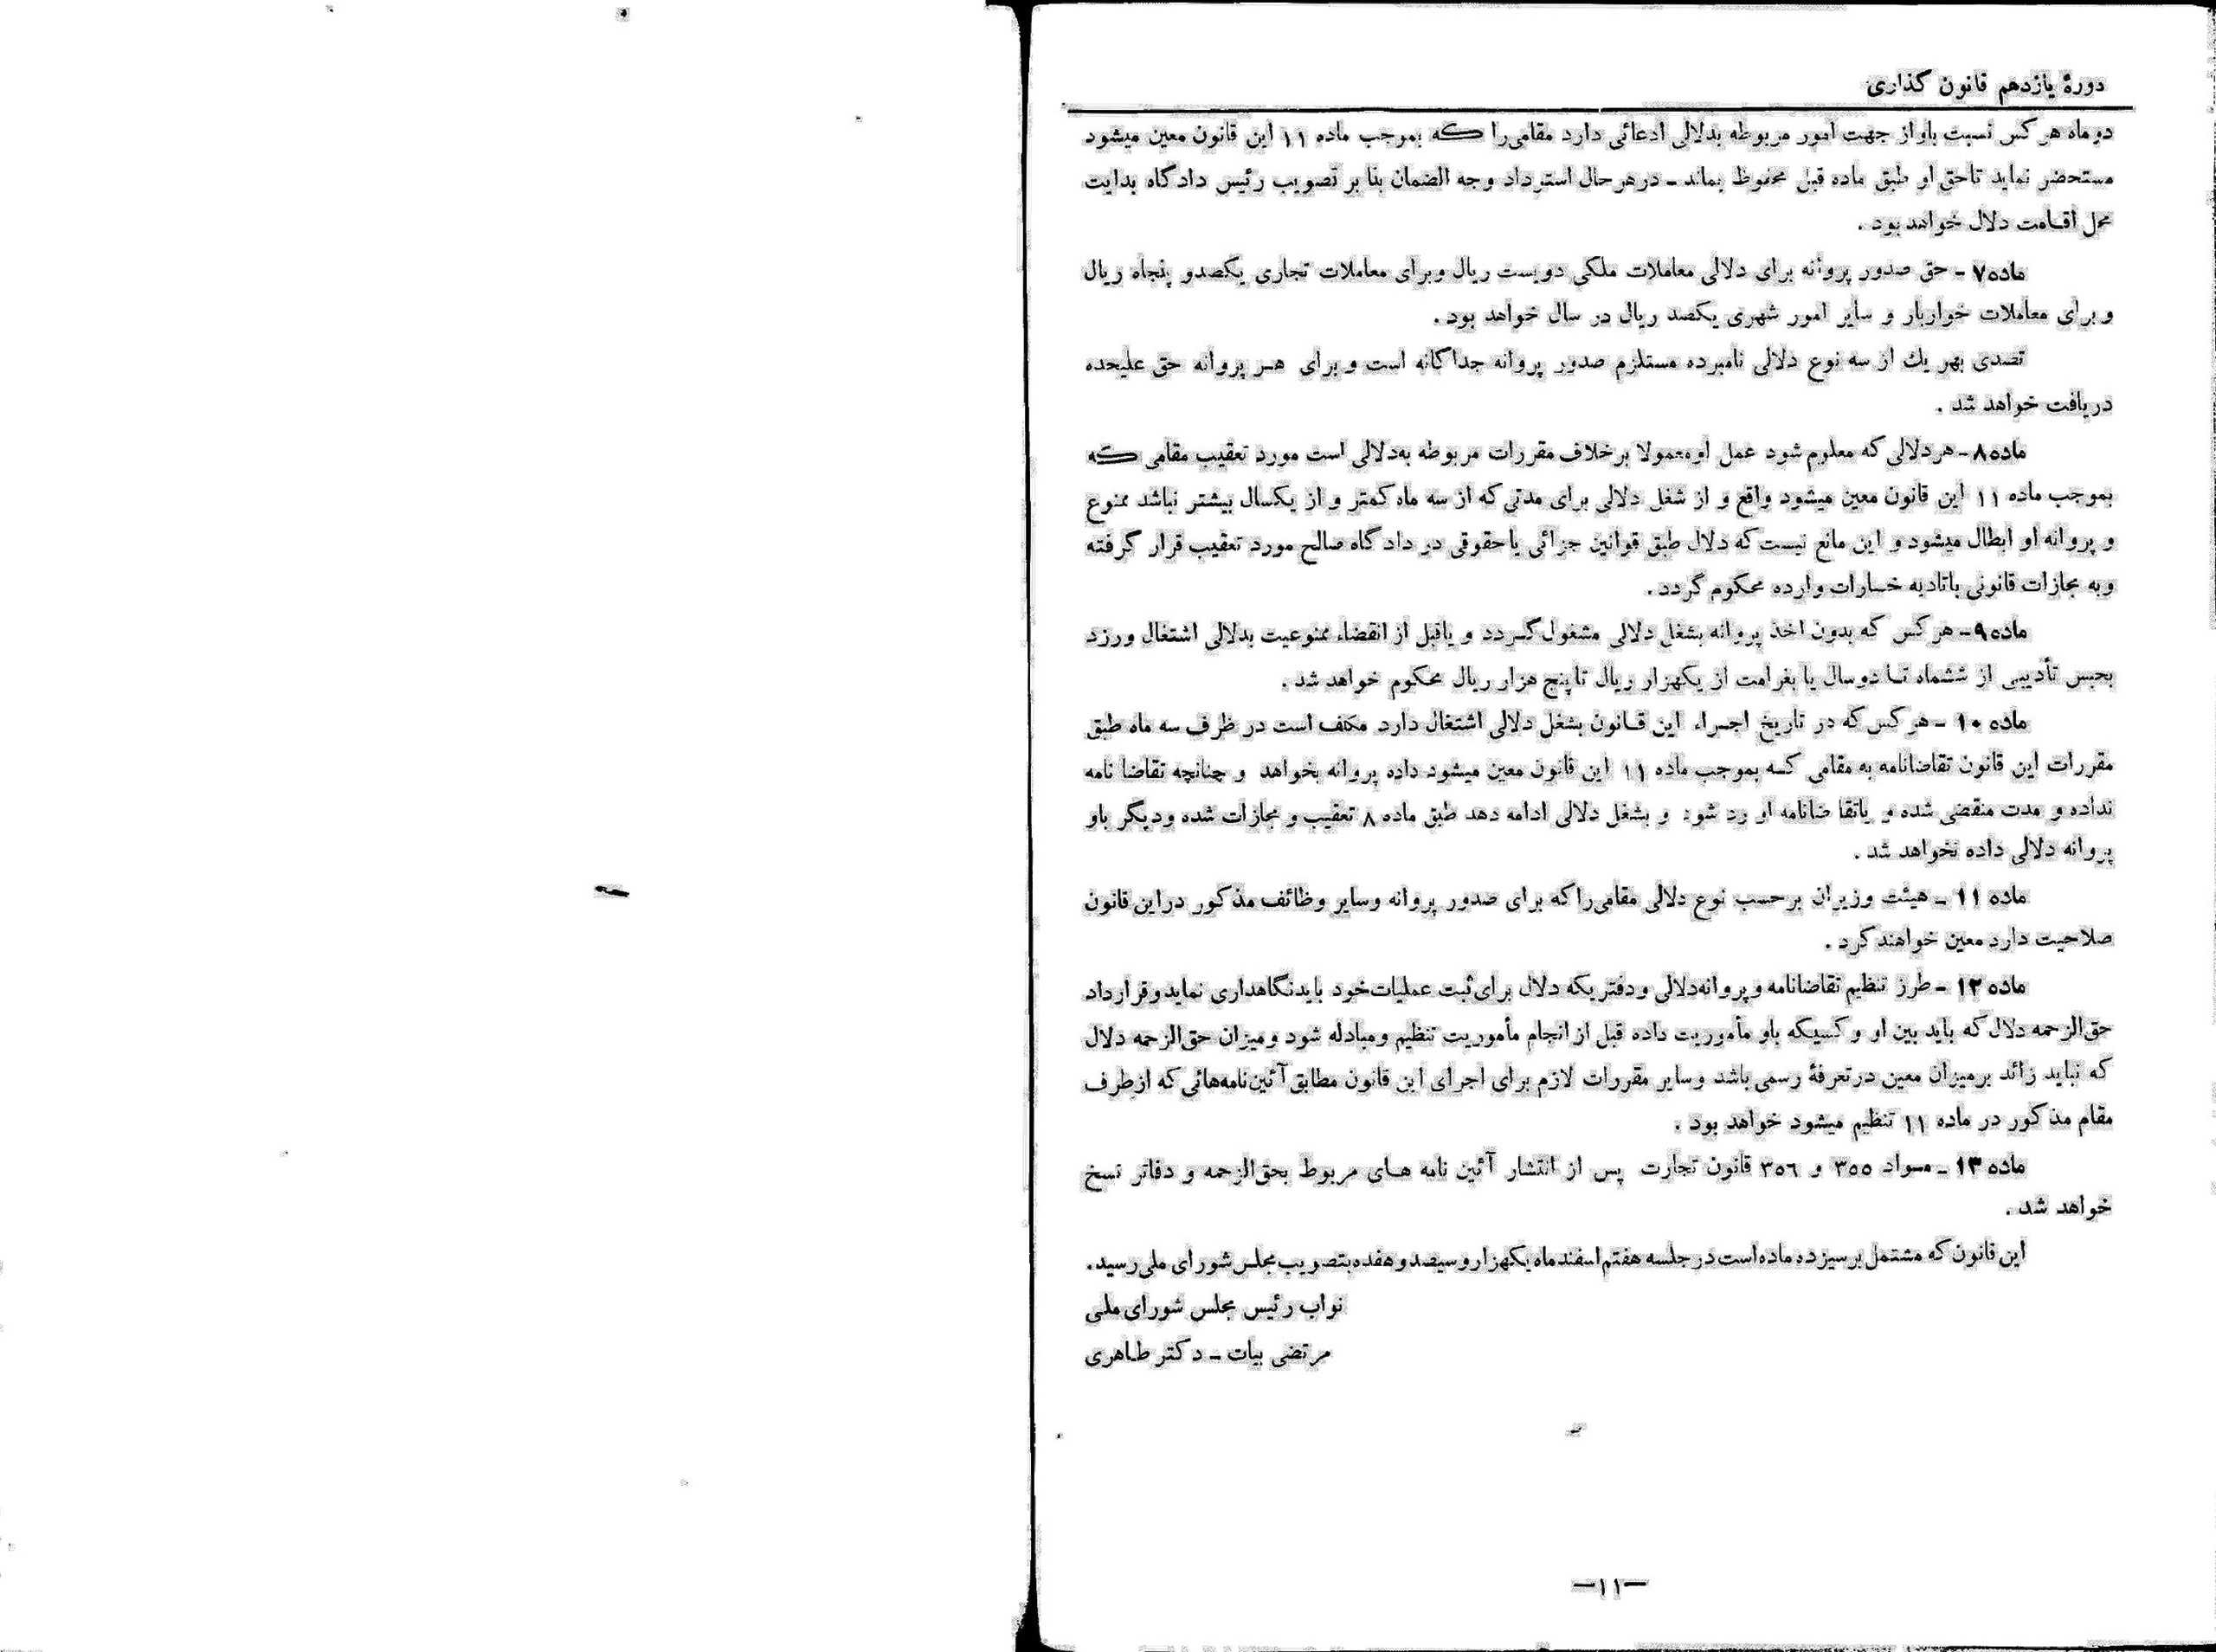 دورهٔ یازدهم قانون گذاری
دوماه هر کس نسبت باو از جهت امور مربوطه بدلالی ادعائی دارد مقامی‌را که بموجب ماده ۱۱ این قانون معین میشود
مستحضر نماید تاحق او طبق ماده قبل محفوظ بماند ـ درهرحال استرداد وجه الضمان بنا بر تصویب رئیس دادگاه بدایت
محل اقامت دلال خواهد بود .
ماده ۷ ـ حق صدور پروانه برای دلالی معاملات ملکی دویست ریال وبرای معاملات تجاری یکصدو پنجاه ریال
و برای معاملات خواربار و سایر امور شهری یکصد ریال در سال خواهد بود .
تصدی بهر یك از سه نوع دلالی نامبرده مستلزم صدور پروانه جداگانه است و برای هر پروانه حق علیحده
دریافت خواهد شد .
ماده ۸ ـ هردلالی که معلوم شود عمل اومعمولا برخلاف مقررات مربوطه به‌دلالی است مورد تعقیب مقامی که
بموجب ماده ۱۱ این قانون معین میشود واقع و از شغل دلالی برای مدتی که از سه ماه کمتر و از یکسال بیشتر نباشد ممنوع
و پروانه او ابطال میشود و این مانع نیست که دلال طبق قوانین جزائی یاحقوقی در دادگاه صالح مورد تعقیب قرار گرفته
وبه مجازات قانونی یاتادیه خسارات وارده محکوم گردد .
ماده ۹ ـ هر کس که بدون اخذ پروانه بشغل دلالی مشغول گردد و یاقبل از انقضاء ممنوعیت بدلالی اشتغال ورزد
بحبس تأدیبی از ششماه تا دوسال یا بغرامت از یکهزار ریال تاپنج هزار ریال محکوم خواهد شد .
ماده ۱۰ ـ هر کس که در تاریخ اجراء این قانون بشغل دلالی اشتغال دارد مکلف است در ظرف سه ماه طبق
مقررات این قانون تقاضانامه به مقامی که بموجب ماده ۱۱ این قانون معین میشود داده پروانه بخواهد و چنانچه تقاضا نامه
نداده و مدت منقضی شده و یاتقا ضانامه او رد شود و بشغل دلالی ادامه دهد طبق ماده ۸ تعقیب و مجازات شده ودیگر باو
پروانه دلالی داده نخواهد شد .
ماده ۱۱ ـ هیئت وزیران برحسب نوع دلالی مقامی‌را که برای صدور پروانه وسایر وظائف مذکور دراین قانون
صلاحیت دارد معین خواهند کرد .
ماده ۱۲ ـ طرز تنظیم تقاضانامه و پروانه‌دلالی و دفتریکه دلال برای ثبت عملیات‌خود بایدنگاهداری نماید وقرارداد
حق‌الزحمه دلال که باید بین او و کسیکه باو مأموریت داده قبل از انجام مأموریت تنظیم ومبادله شود ومیزان حق‌الزحمه دلال
که نباید زائد برمیزان معین درتعرفهٔ رسمی باشد وسایر مقررات لازم برای اجرای این قانون مطابق آئین‌نامه‌هائی که ازطرف
مقام مذکور در ماده ۱۱ تنظیم میشود خواهد بود .
ماده ۱۳ ـ مواد ۳۵۵ و ۳۵۶ قانون تجارت پس از انتشار آئین نامه های مربوط بحق‌الزحمه و دفاتر نسخ
خواهد شد .
این قانون که مشتمل برسیزده ماده است در جلسه هفتم اسفندماه یکهزار و سیصد و هفده بتصویب مجلس شورای ملی رسید .
نواب رئیس مجلس شورای ملی
مرتضی بیات ـ دکتر طاهری
—۱۱—